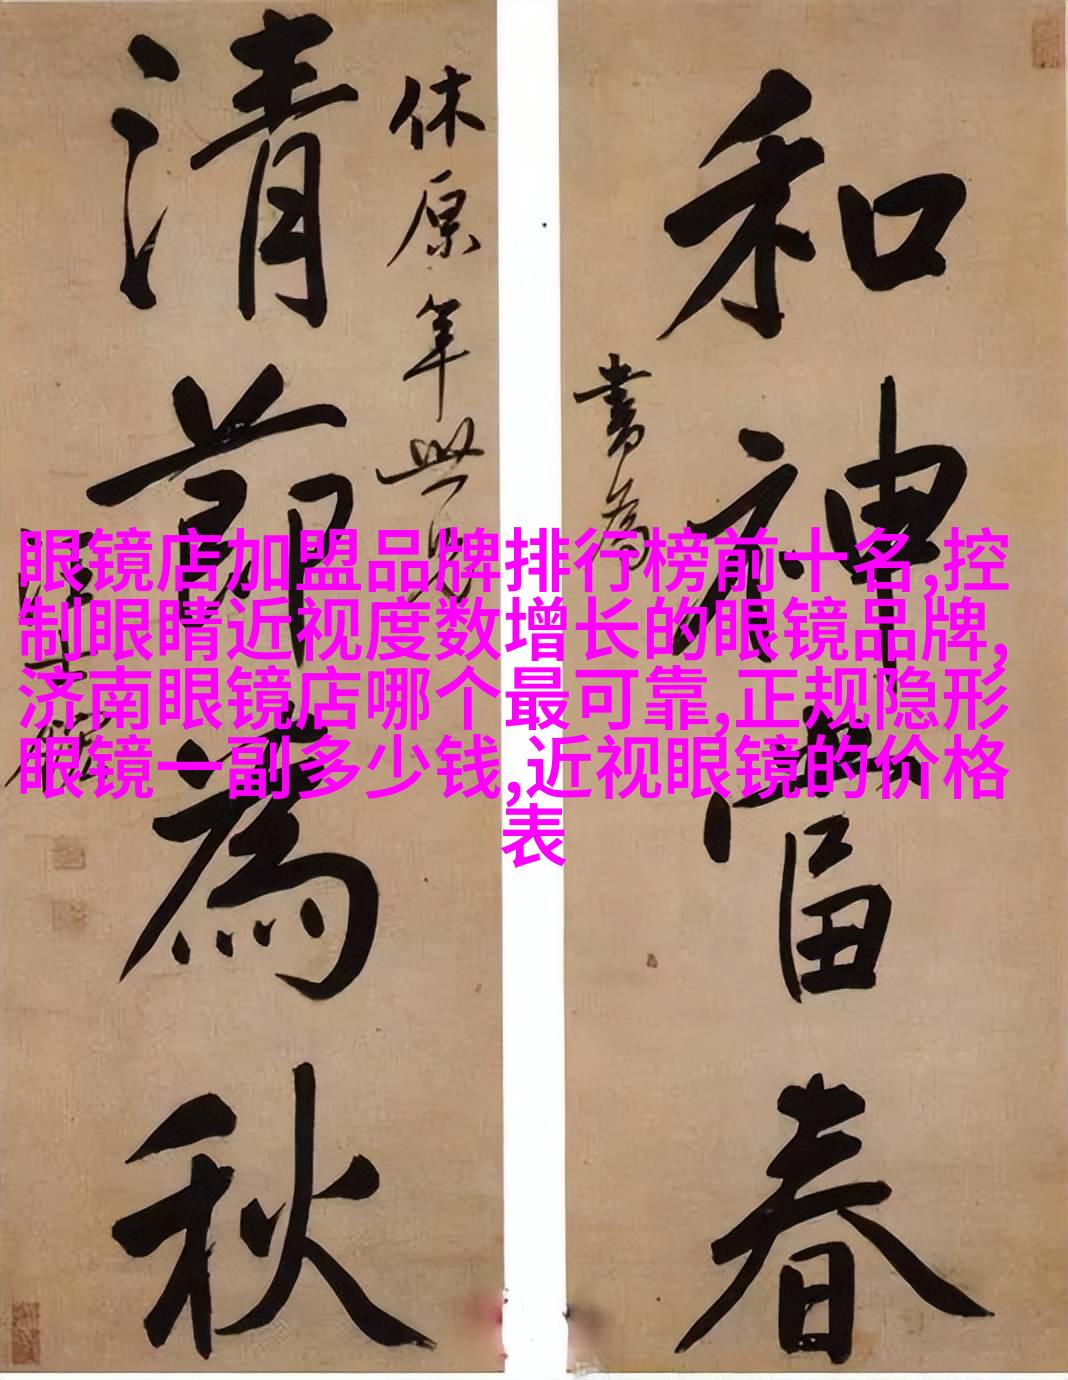 和神當春
書為
休原年世兄
清節為秋
眼镜店加盟品牌排行榜前十名,控
制眼睛近视度数增长的眼镜品牌,
济南眼镜店哪个最可靠,正规隐形
眼镜一副多少钱,近视眼镜的价格
表